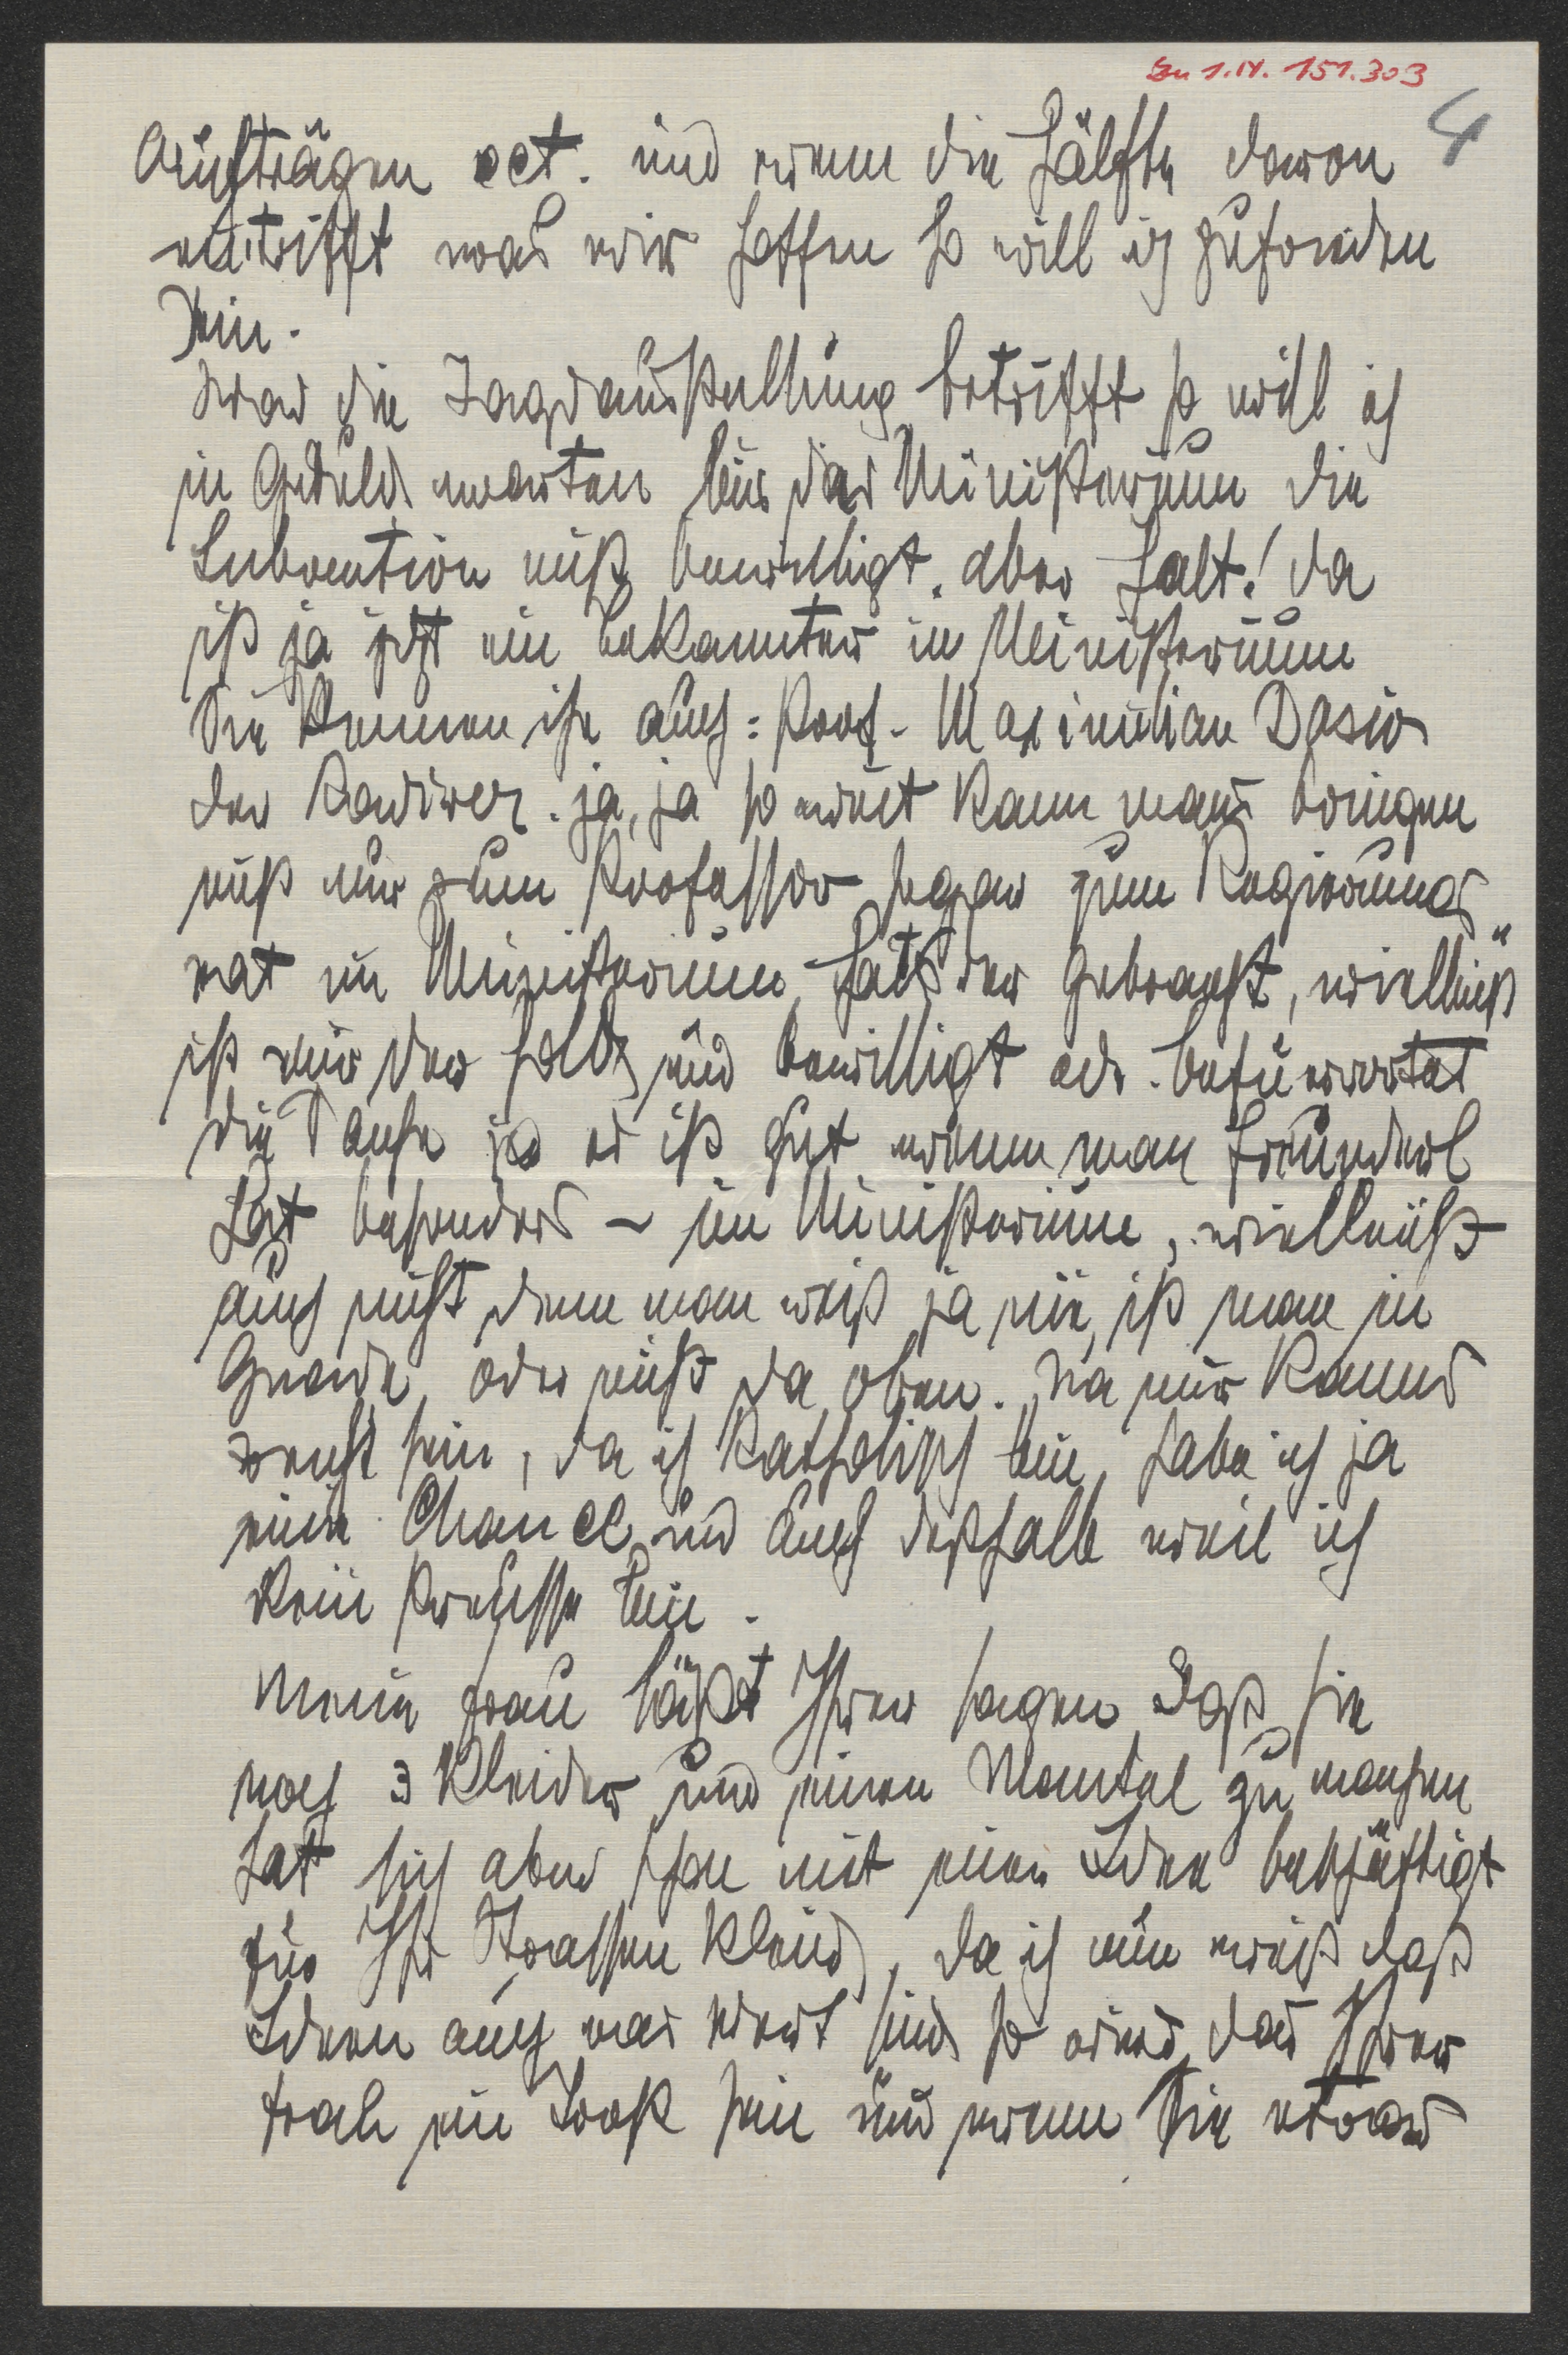 Lu 1.IV. 151.303
4
Aufträgen ect. und wenn die Hälfte davon
eintrifft was wir hoffen so will ich zufrieden
sein.
Was die Jagdausstellung betrifft so will ich
in Geduld warten bis das Ministerium die
Subvention nicht bewilligt. aber halt! da
ist ja jetzt ein bekannter im Ministerium
Sie kennen ihn auch: Prof. Maximilian Dasio
der Radirer. ja, ja so weit kann mans bringen
nicht nur zum Professor sogar zum Regierungs
rat im Ministerium, hats der gebracht, vielleicht
ist mir der hold und bewilligt od. befürwortet
die Sache ja es ist gut wenn man Freunderl
hat besonders – im Ministerium, vielleicht
auch nicht denn man weiß ja nie, ist man in
Gnade oder nicht da oben. Na mir kanns
recht sein, da ich katholisch bin, habe ich ja
eine Chance und auch deßhalb weil ich
kein Preusse bin.
Meine Frau läßt Ihnen sagen daß sie
noch 3 Kleider und einen Mantel zu machen
hat sich aber schon mit einer Idee beschäftigt
für Ihr Strassen Kleid, da ich nun weiß daß
Ideen auch was wert sind so wird das Ihnen
ein Trost sein und wenn Sie etwas